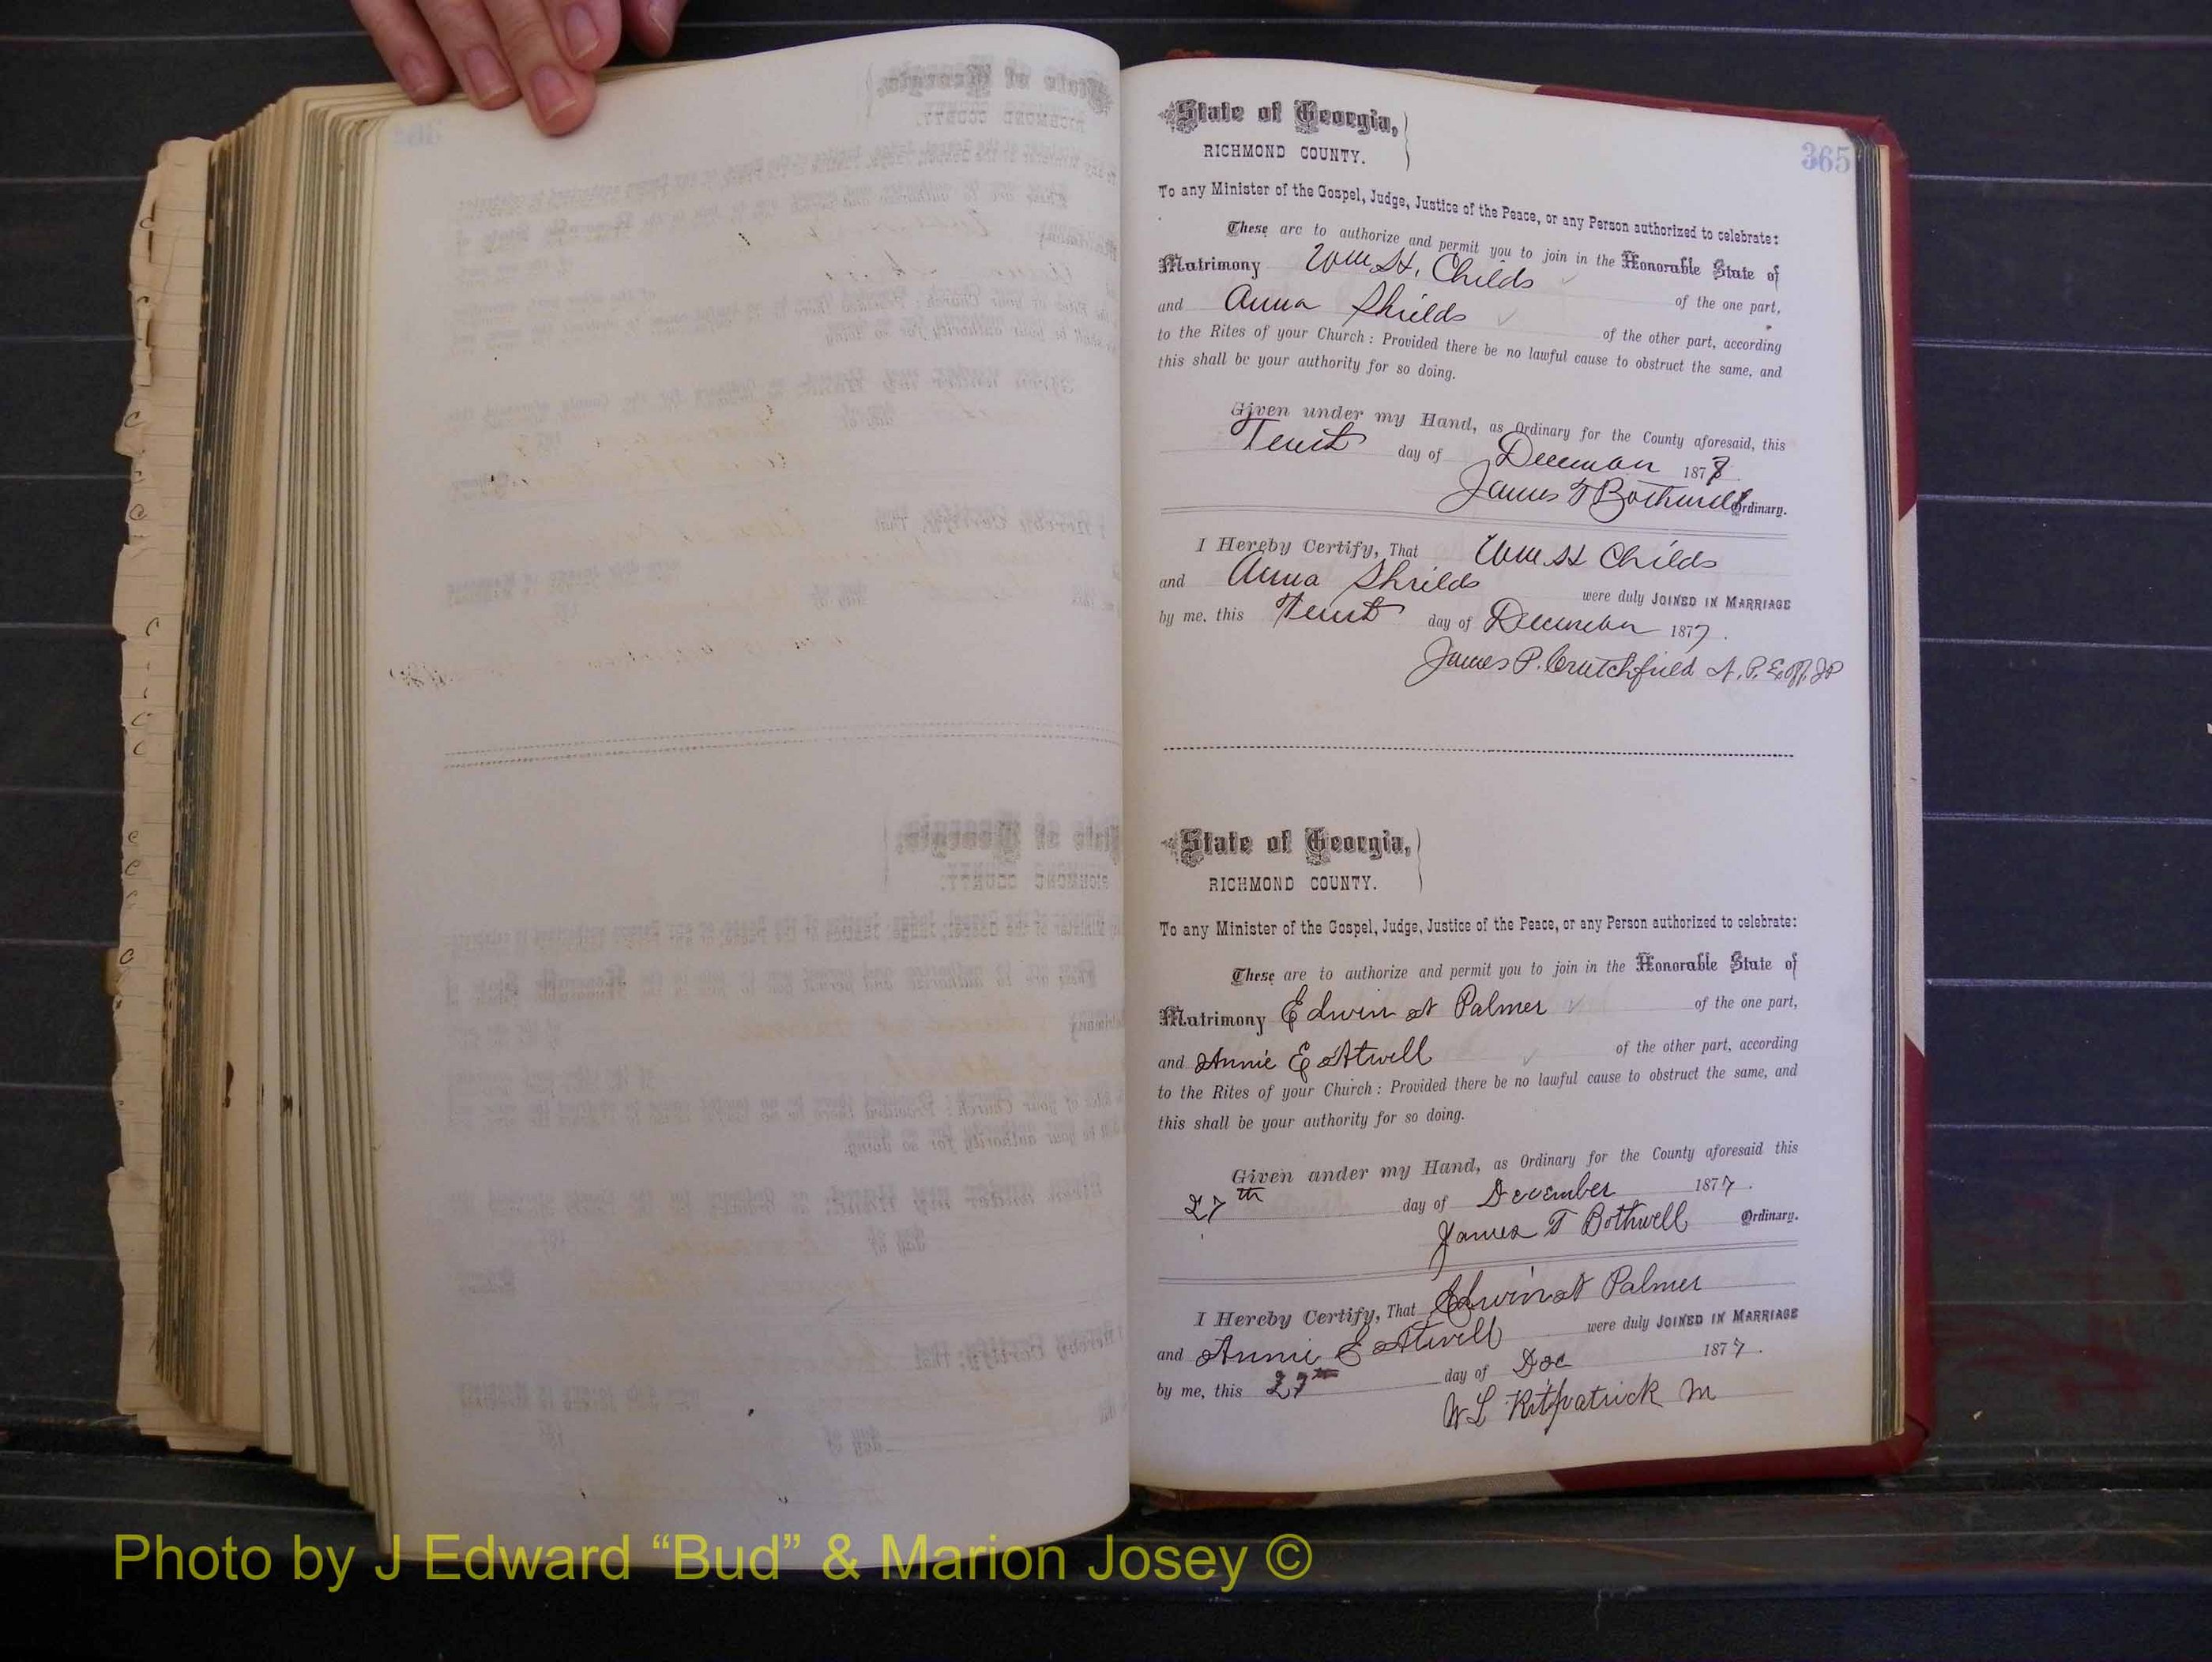 365
State of Georgia,
RICHMOND COUNTY.
To any Minister of the Gospel, Judge, Justice of the Peace, or any Person authorized to celebrate:
These are to authorize and permit you to join in the Honorable State of
Matrimony Wm H. Childs of the one part,
and Anna Shields of the other part, according
to the Rites of your Church: Provided there be no lawful cause to obstruct the same, and
this shall be your authority for so doing.
Given under my Hand, as Ordinary for the County aforesaid, this
Tenth day of December 187
James T Bothwell Ordinary.
I Hereby Certify, That Wm H Childs
and Anna Shields were duly JOINED IN MARRIAGE
by me, this Tenth day of December 1877.
James P. Crutchfield
State of Georgia,
RICHMOND COUNTY.
To any Minister of the Gospel, Judge, Justice of the Peace, or any Person authorized to celebrate:
These are to authorize and permit you to join in the Honorable State of
Matrimony Edwin A Palmer of the one part,
and Annie E Atwell of the other part, according
to the Rites of your Church: Provided there be no lawful cause to obstruct the same, and
this shall be your authority for so doing.
Given under my Hand, as Ordinary for the County aforesaid this
27th day of December 1877.
James T Bothwell Ordinary.
I Hereby Certify, That Edwin A Palmer
and Annie E Atwell were duly JOINED IN MARRIAGE
by me, this 27th day of Dec 1877.
W L Kilpatrick M
Photo by J Edward “Bud” & Marion Josey ©